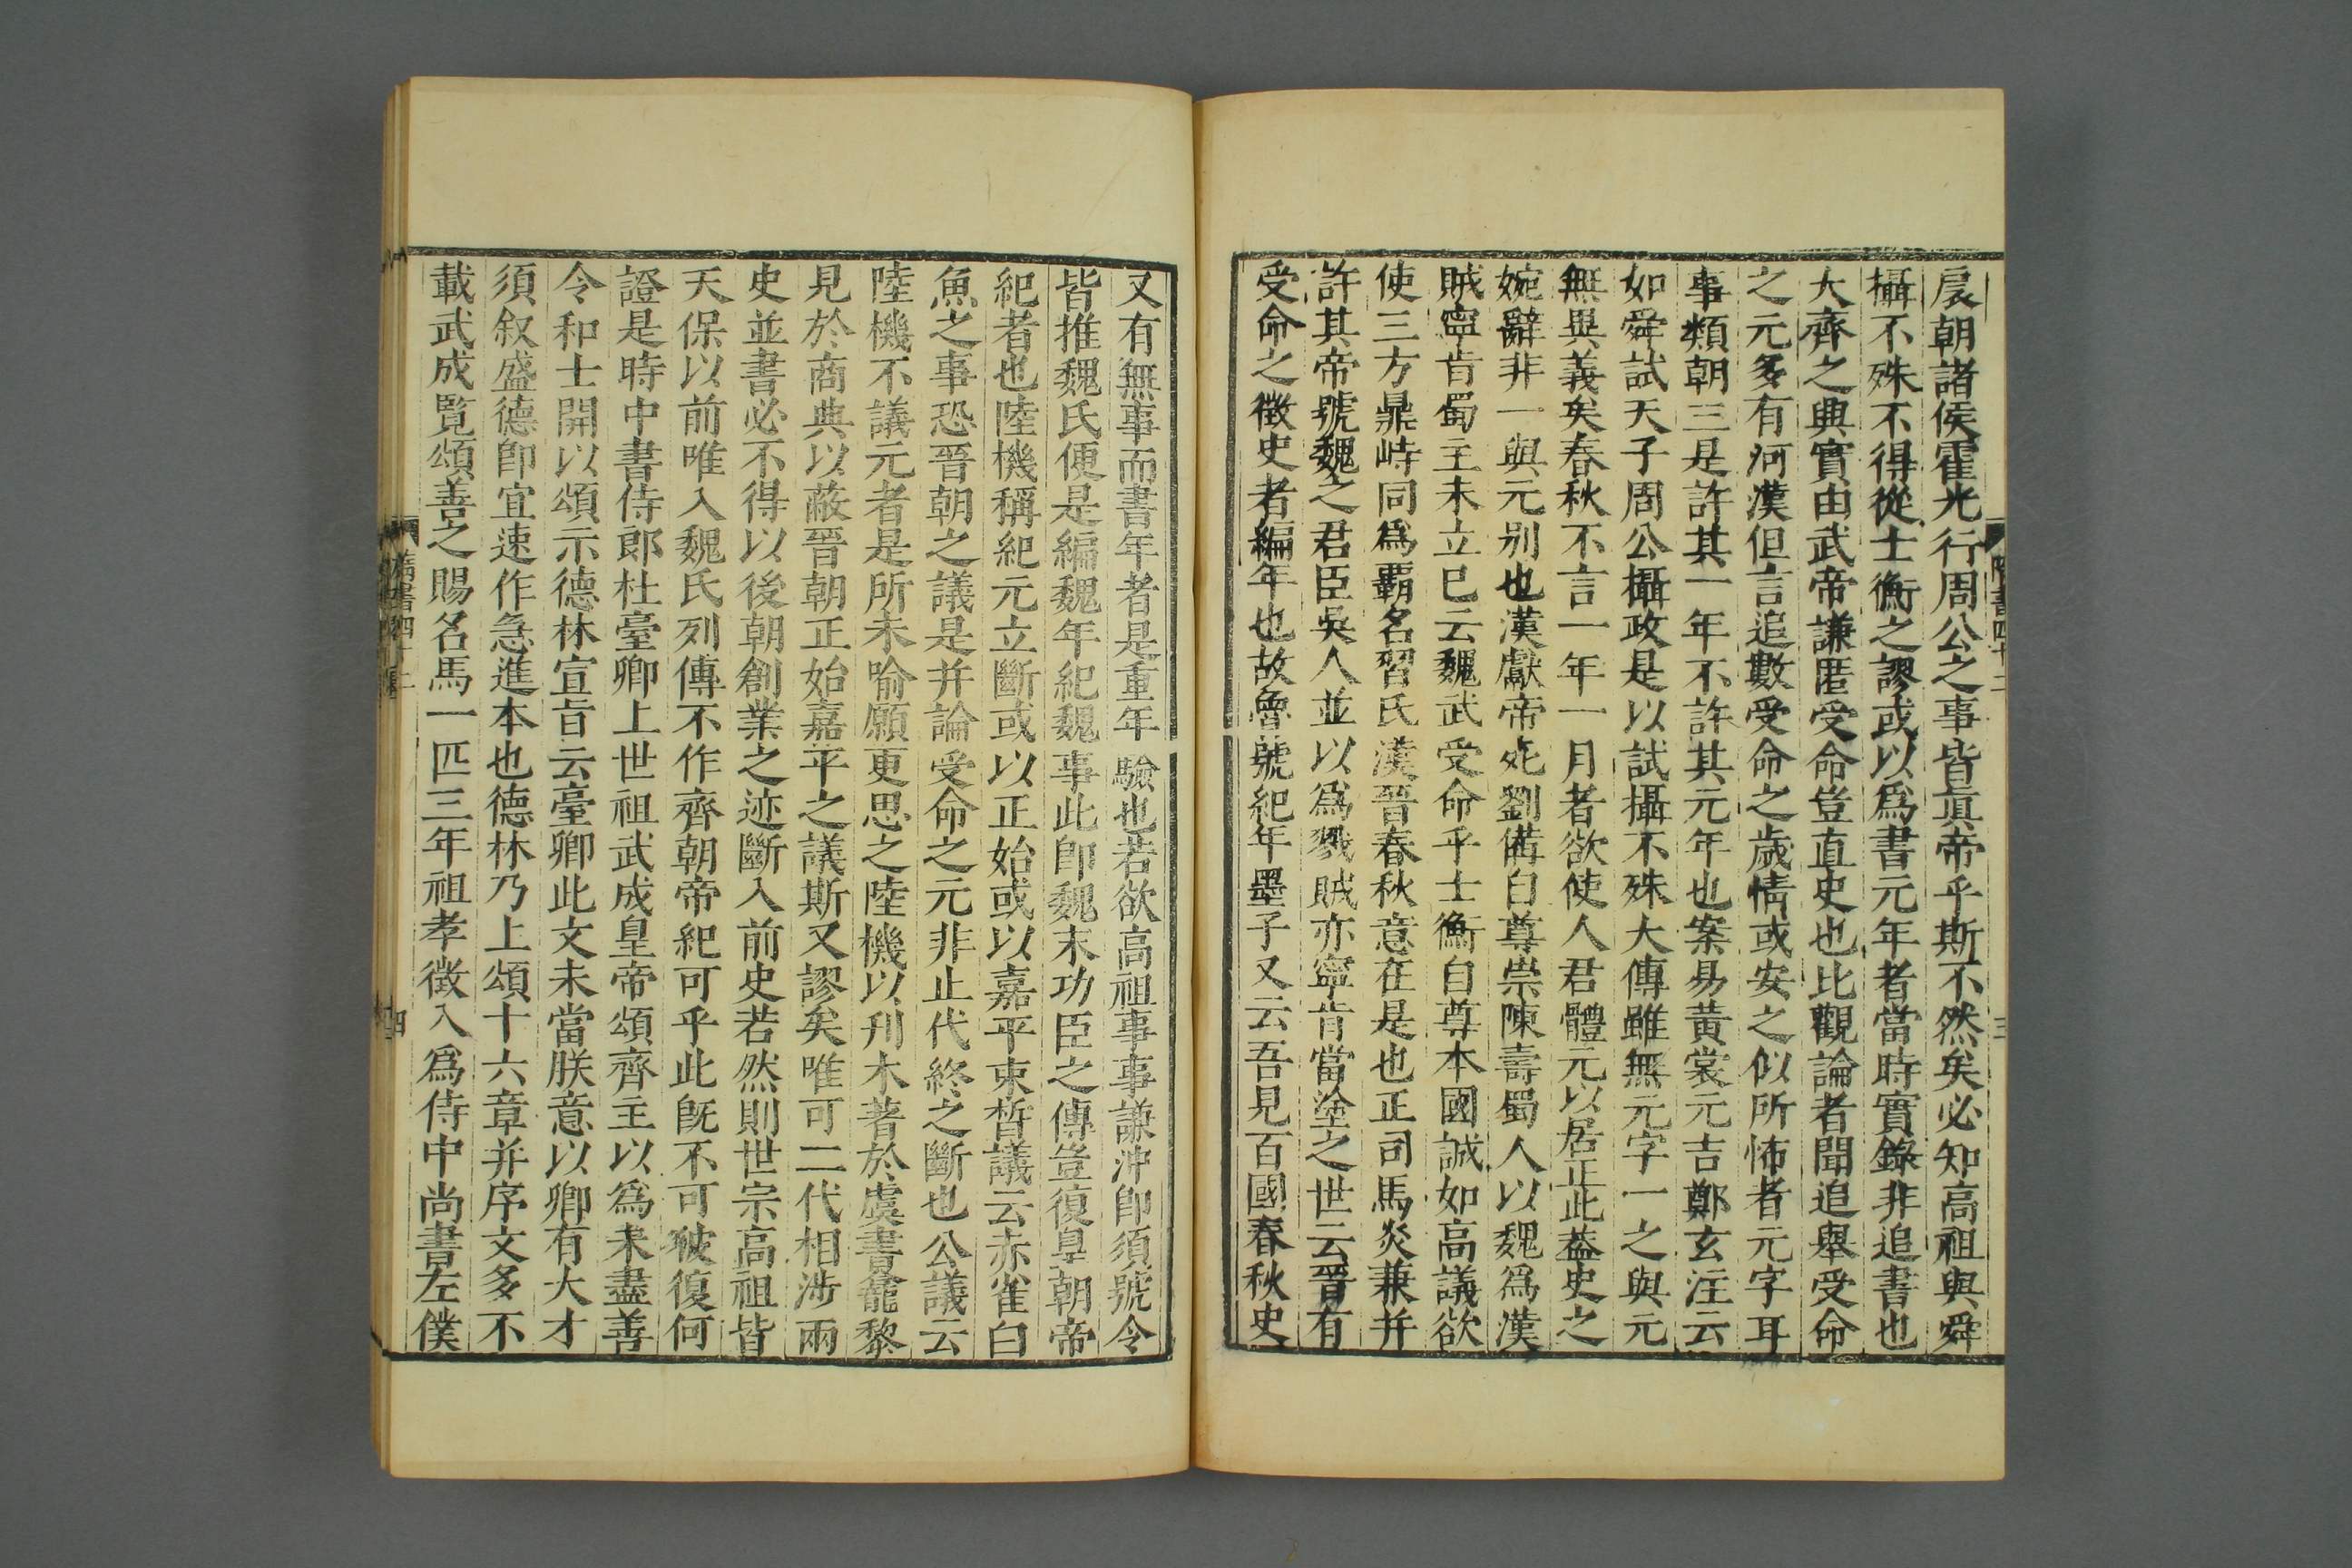 扆朝諸侯霍光行周公之事皆眞帝乎斯不然矣必知高祖與舜
攝不殊不得從士衡之謬或以爲書元年者當時實錄非追書也
大齊之興實由武帝謙匿受命豈直史也比觀論者聞追舉受命
之元多有河漢但言追數受命之歲情或安之似所怖者元字耳
事類朝三是許其一年不許其元年也案易黃裳元吉鄭玄注云
如舜試天子周公攝政是以試攝不殊大傳雖無元字一之與元
無異義矣春秋不言一年一月者欲使人君體元以居正此蓋史之
婉辭非一與元别也漢獻帝死劉備自尊崇陳壽蜀人以魏爲漢
賊寧肯蜀主未立已云魏武受命乎士衡自尊本國誠如高議欲
使三方鼎峙同爲霸名習氏漢晉春秋意在是也正司馬炎兼并
許其帝號魏之君臣吳人並以爲戮賊亦寧肯當塗之世云晉有
受命之徵史者編年也故魯號紀年墨子又云吾見百國春秋史
隋書四十二
三
又有無事而書年者是重年驗也若欲高祖事事謙沖即須號令
皆推魏氏便是編魏年紀魏事此即魏末功臣之傳豈復皇朝帝
紀者也陸機稱紀元立斷或以正始或以嘉平束晳議云赤雀白
魚之事恐晉朝之議是并論受命之元非止代終之斷也公議云
陸機不議元者是所未喻願更思之陸機以刋木著於虞書龕黎
見於商典以蔽晉朝正始嘉平之議斯又謬矣唯可二代相涉兩
史並書必不得以後朝創業之迹斷入前史若然則世宗高祖皆
天保以前唯入魏氏列傳不作齊朝帝紀可乎此旣不可彼復何
證是時中書侍郎杜臺卿上世祖武成皇帝頌齊主以爲未盡善
令和士開以頌示德林宣旨云臺卿此文未當朕意以卿有大才
須叙盛德即宜速作急進本也德林乃上頌十六章并序文多不
載武成覧頌善之賜名馬一匹三年祖孝徵入爲侍中尚書左僕
隋書四十二
四